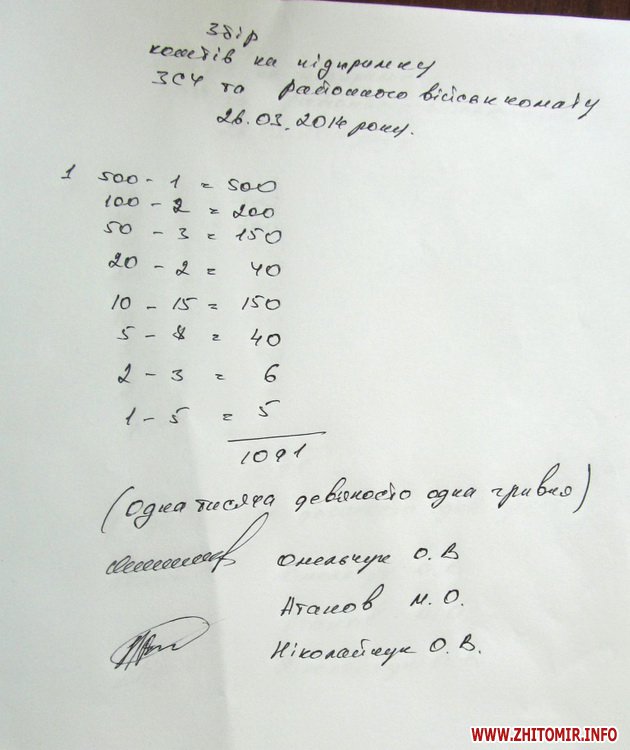 Збір
коштів на підтримку
ЗСУ та районного військкомату
26.03.2014 року.
1 500 - 1 = 500
100 - 2 = 200
50 - 3 = 150
20 - 2 = 40
10 - 15 = 150
5 - 8 = 40
2 - 3 = 6
1 - 5 = 5
1091
(Одна тисяча дев'яносто одна гривня)
Омельчук О.В
Атаков М.О.
Ніколайчук О.В.
WWW.ZHITOMIR.INFO